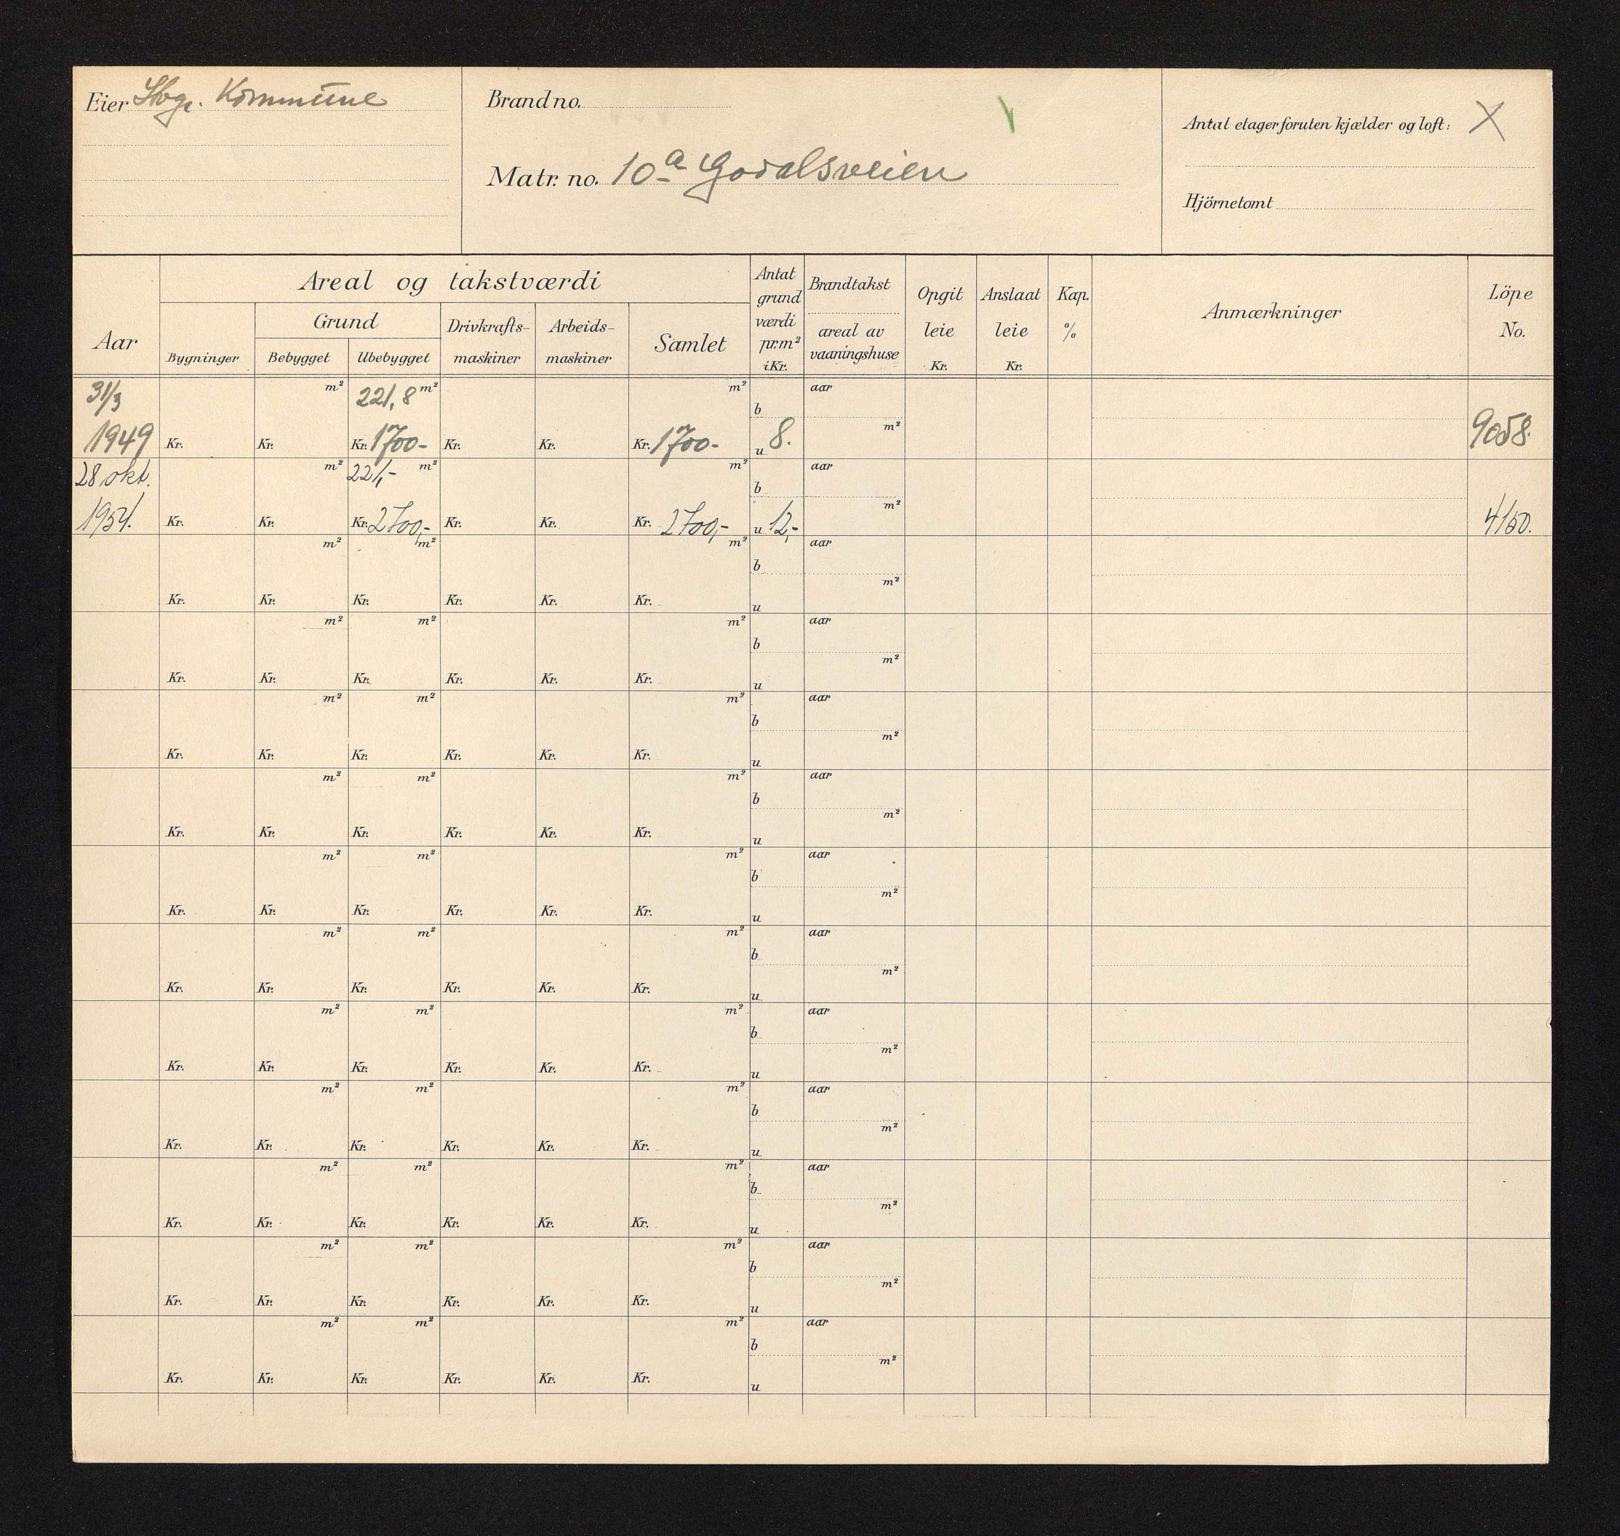 Eier Stvgr. Kommune
Brand no.
Matr. no. 10a Godalsveien
Antal etager foruten kjælder og loft: X
Hjörnetomt
Aar
Areal og takstværdi
Bygninger
Grund
Bebygget
Ubebygget
Drivkrafts-
maskiner
Arbeids-
maskiner
Samlet
Antat
grund
værdi
pr.m²
i Kr.
Brandtakst
areal av
vaaningshuse
Opgit
leie
Kr.
Anslaat
leie
Kr.
Kap.
%
Anmærkninger
Löpe
No.
31/3 m² 221,8 m² m² b aar
1949 Kr. Kr. Kr. 1700- Kr. Kr. Kr. 1700- u 8. m² 9058.
28 okt. m² 221,- m² m² b aar
1954. Kr. Kr. Kr. 2700,- Kr. Kr. Kr. 2700,- u 12,- m² 4150.
m² m² m² b aar
Kr. Kr. Kr. Kr. Kr. Kr. u m²
m² m² m² b aar
Kr. Kr. Kr. Kr. Kr. Kr. u m²
m² m² m² b aar
Kr. Kr. Kr. Kr. Kr. Kr. u m²
m² m² m² b aar
Kr. Kr. Kr. Kr. Kr. Kr. u m²
m² m² m² b aar
Kr. Kr. Kr. Kr. Kr. Kr. u m²
m² m² m² b aar
Kr. Kr. Kr. Kr. Kr. Kr. u m²
m² m² m² b aar
Kr. Kr. Kr. Kr. Kr. Kr. u m²
m² m² m² b aar
Kr. Kr. Kr. Kr. Kr. Kr. u m²
m² m² m² b aar
Kr. Kr. Kr. Kr. Kr. Kr. u m²
m² m² m² b aar
Kr. Kr. Kr. Kr. Kr. Kr. u m²
m² m² m² b aar
Kr. Kr. Kr. Kr. Kr. Kr. u m²